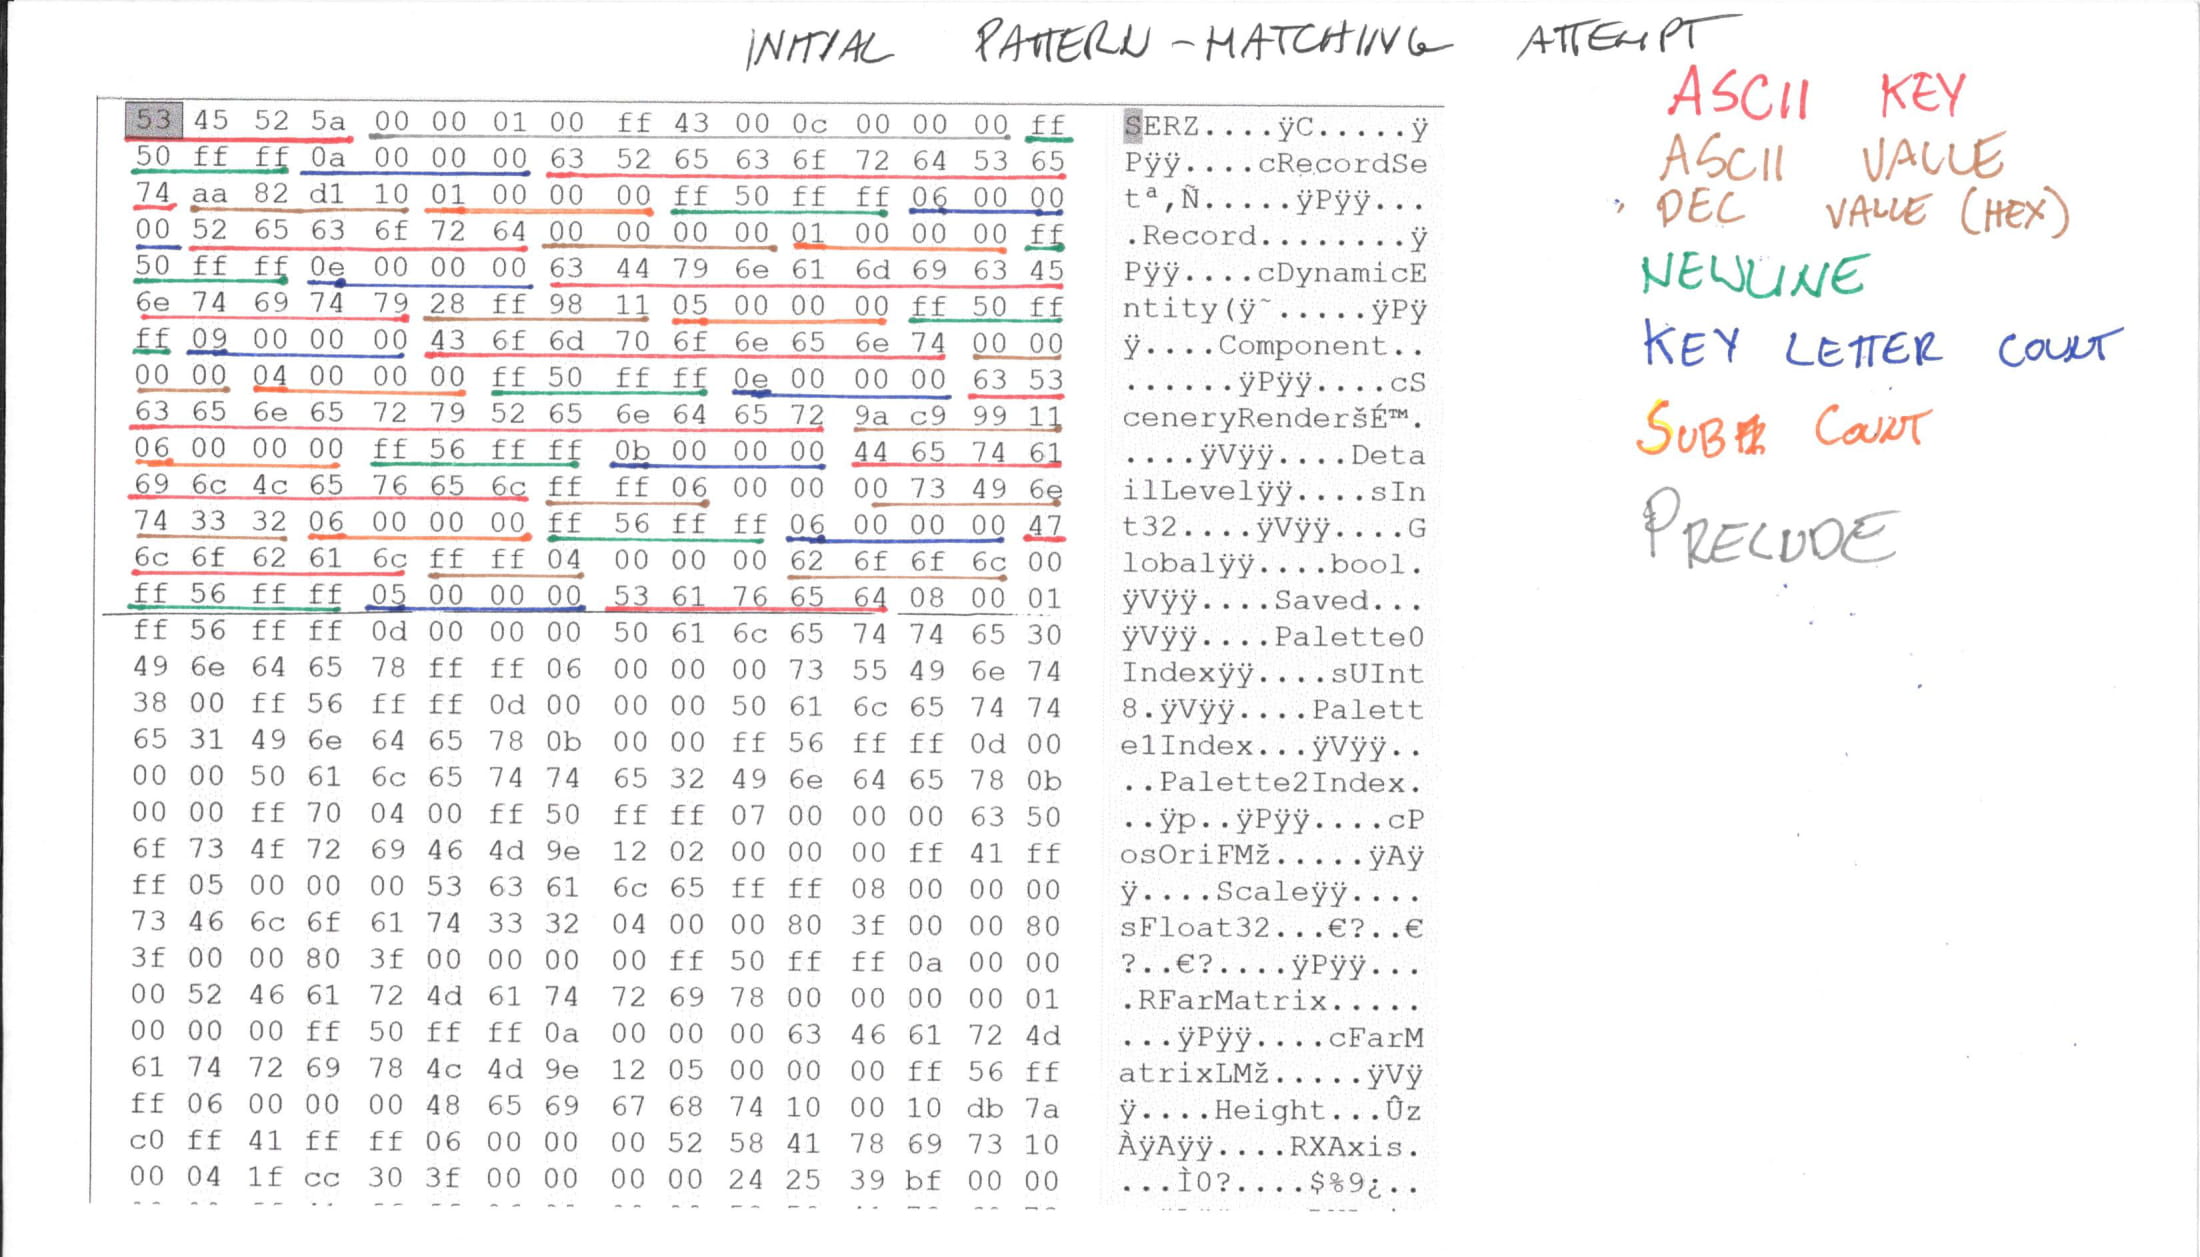 INITIAL PATTERN-MATCHING ATTEMPT
ASCII KEY
ASCII VALUE
DEC VALUE (HEX)
NEWLINE
KEY LETTER COUNT
SUB COUNT
PRELUDE
53 45 52 5a 00 00 01 00 ff 43 00 0c 00 00 00 ff SERZ....ÿC.....ÿ
50 ff ff 0a 00 00 00 63 52 65 63 6f 72 64 53 65 Pÿÿ....cRecordSe
74 aa 82 d1 10 01 00 00 00 ff 50 ff ff 06 00 00 tª‚Ñ.....ÿPÿÿ...
00 52 65 63 6f 72 64 00 00 00 00 01 00 00 00 ff .Record........ÿ
50 ff ff 0e 00 00 00 63 44 79 6e 61 6d 69 63 45 Pÿÿ....cDynamicE
6e 74 69 74 79 28 ff 98 11 05 00 00 00 ff 50 ff ntity(ÿ˜.....ÿPÿ
ff 09 00 00 00 43 6f 6d 70 6f 6e 65 6e 74 00 00 ÿ....Component..
00 00 04 00 00 00 ff 50 ff ff 0e 00 00 00 63 53 ......ÿPÿÿ....cS
63 65 6e 65 72 79 52 65 6e 64 65 72 9a c9 99 11 ceneryRenderšÉ™.
06 00 00 00 ff 56 ff ff 0b 00 00 00 44 65 74 61 ....ÿVÿÿ....Deta
69 6c 4c 65 76 65 6c ff ff 06 00 00 00 73 49 6e ilLevelÿÿ....sIn
74 33 32 06 00 00 00 ff 56 ff ff 06 00 00 00 47 t32....ÿVÿÿ....G
6c 6f 62 61 6c ff ff 04 00 00 00 62 6f 6f 6c 00 lobalÿÿ....bool.
ff 56 ff ff 05 00 00 00 53 61 76 65 64 08 00 01 ÿVÿÿ....Saved...
ff 56 ff ff 0d 00 00 00 50 61 6c 65 74 74 65 30 ÿVÿÿ....Palette0
49 6e 64 65 78 ff ff 06 00 00 00 73 55 49 6e 74 Indexÿÿ....sUInt
38 00 ff 56 ff ff 0d 00 00 00 50 61 6c 65 74 74 8.ÿVÿÿ....Palett
65 31 49 6e 64 65 78 0b 00 00 ff 56 ff ff 0d 00 e1Index...ÿVÿÿ..
00 00 50 61 6c 65 74 74 65 32 49 6e 64 65 78 0b ..Palette2Index.
00 00 ff 70 04 00 ff 50 ff ff 07 00 00 00 63 50 ..ÿp..ÿPÿÿ....cP
6f 73 4f 72 69 46 4d 9e 12 02 00 00 00 ff 41 ff osOriFMž.....ÿAÿ
ff 05 00 00 00 53 63 61 6c 65 ff ff 08 00 00 00 ÿ....Scaleÿÿ....
73 46 6c 6f 61 74 33 32 04 00 00 80 3f 00 00 80 sFloat32...€?..€
3f 00 00 80 3f 00 00 00 00 ff 50 ff ff 0a 00 00 ?..€?....ÿPÿÿ...
00 52 46 61 72 4d 61 74 72 69 78 00 00 00 00 01 .RFarMatrix.....
00 00 00 ff 50 ff ff 0a 00 00 00 63 46 61 72 4d ...ÿPÿÿ....cFarM
61 74 72 69 78 4c 4d 9e 12 05 00 00 00 ff 56 ff atrixLMž.....ÿVÿ
ff 06 00 00 00 48 65 69 67 68 74 10 00 10 db 7a ÿ....Height...Ûz
c0 ff 41 ff ff 06 00 00 00 52 58 41 78 69 73 10 ÀÿAÿÿ....RXAxis.
00 04 1f cc 30 3f 00 00 00 00 24 25 39 bf 00 00 ...Ì0?....$%9¿..